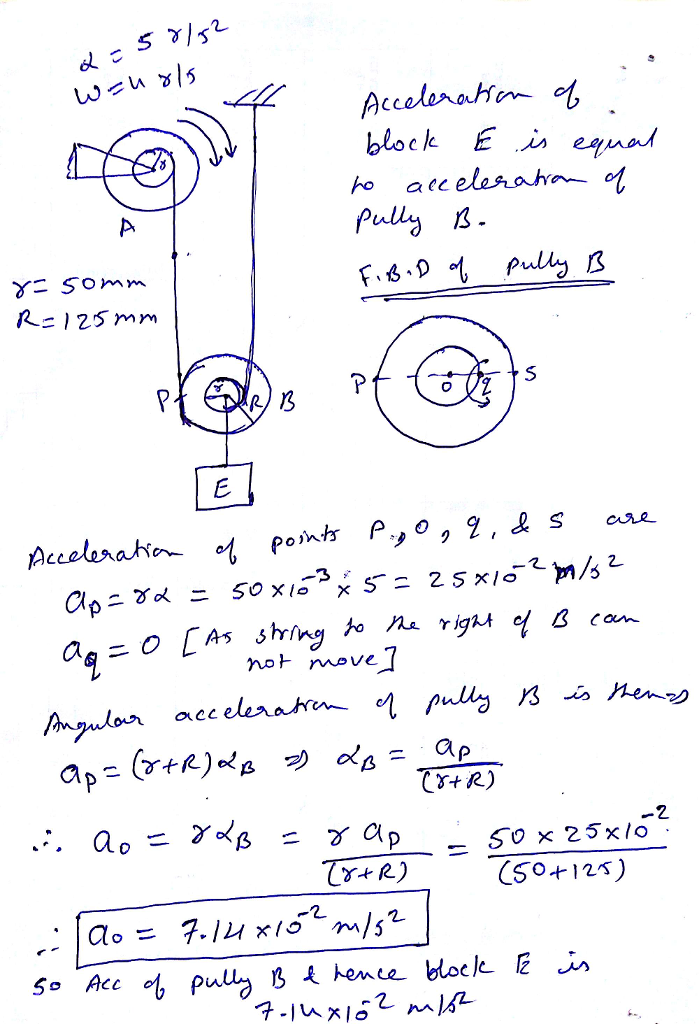 α = 5 r/s²
W = 4 r/s
Acceleration of
block E is equal
to acceleration of
Pully B.
F.B.D of pully B
r
A
r = 50mm
R = 125mm
P
r
R
B
E
P
O
q
S
Acceleration of points P, O, q, & S are
ap = rα = 50 x 10⁻³ x 5 = 25 x 10⁻² m/s²
aq = O [As string to the right of B can
not move]
Angular acceleration of pully B is then ⇒
ap = (r+R) αB ⇒ αB = ap/(r+R)
∴ ao = r αB = r ap/(r+R) = 50 x 25 x 10⁻²/(50+125)
∴ ao = 7.14 x 10⁻² m/s²
So Acc of pully B & hence block E is
7.14 x 10⁻² m/s²